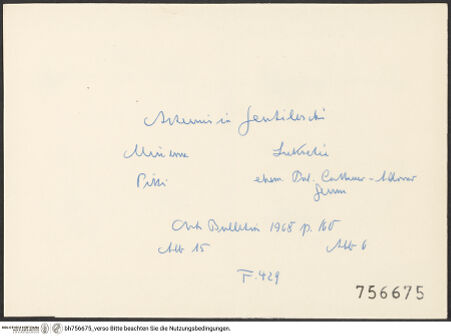 Artemisia Gentileschi
Minerva Lukretia
Pitti ehem Pal. Cattaneo-Adorno
Genua
Art Bulletin 1968 p. 160
Abb 15 Abb 6
F. 429
756675
bh756675_verso Bitte beachten Sie die Nutzungsbedingungen.